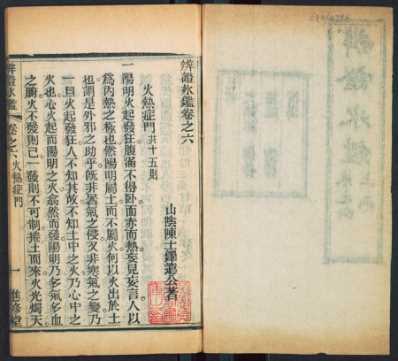 辨證氷鑑卷之六
山陰陳士鐸遠公著
火熱症門共十五則
一陽明火起發狂腹滿不得臥面赤而熱妄見妄言人以
爲內熱之極也然陽明屬土而不屬火何以火出於土
也謂是外邪之助乎旣非暑氣之侵又非寒氣之變乃
一旦火起發狂人不知其故不知土中之火乃心中之
火也心火起而陽明之火翕然而發陽明乃多氣多血
之腑火不發則已一發則不可制捲土而來火光燭天
辨證氷鑑
卷之六火熱症門
一